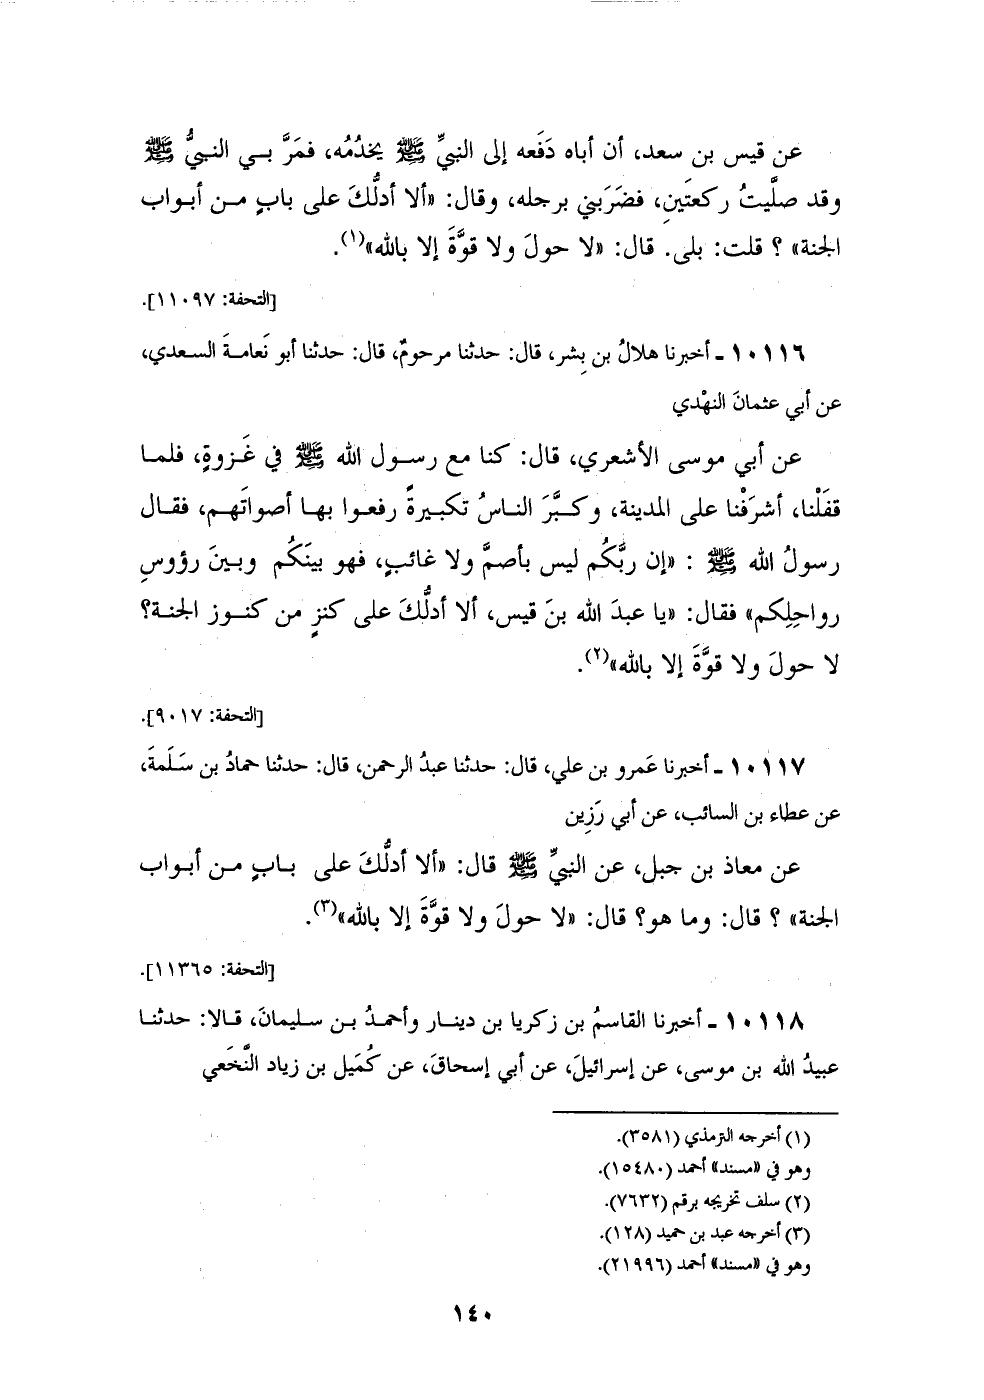 عن قيس بن سعد، أن أباه دَفَعه إلى النبيِّ ﷺ يخدُمُه، فمَرَّ بي النبيُّ ﷺ
وقد صلَّيتُ ركعتَينِ، فضَرَبني برجله، وقال: «ألا أدلُّكَ على بابٍ من أبواب
الجنة» ؟ قلت: بلى. قال: «لا حولَ ولا قوَّةَ إلا بالله»(١).
[التحفة: ١١٠٩٧].
١٠١١٦ ـ أخبرنا هلالُ بن بِشر، قال: حدثنا مرحومٌ، قال: حدثنا أبو نَعامةَ السعدي،
عن أبي عثمانَ النهْدي
عن أبي موسى الأشعري، قال: كنا مع رسول الله ﷺ في غَزوةٍ، فلما
قفَلْنا، أشرَفْنا على المدينة، وكبَّرَ الناسُ تكبيرةً رفعوا بها أصواتَهم، فقال
رسولُ الله ﷺ : «إن ربَّكُم ليس بأصمَّ ولا غائبٍ، فهو بينَكُم وبينَ رؤوسِ
رواحِلِكم» فقال: «يا عبدَ الله بنَ قيس، ألا أدلُّكَ على كنزٍ من كنوز الجنة؟
لا حولَ ولا قوَّةَ إلا بالله»(٢).
[التحفة: ٩٠١٧].
١٠١١٧ ـ أخبرنا عَمرو بن علي، قال: حدثنا عبدُ الرحمن، قال: حدثنا حمادُ بن سَلَمةَ،
عن عطاء بن السائب، عن أبي رَزِين
عن معاذ بن جبل، عن النبيِّ ﷺ قال: «ألا أدلُّكَ على بابٍ من أبواب
الجنة» ؟ قال: وما هو؟ قال: «لا حولَ ولا قوَّةَ إلا بالله»(٣).
[التحفة: ١١٣٦٥].
١٠١١٨ ـ أخبرنا القاسمُ بن زكريا بن دينار وأحمدُ بن سليمانَ، قالا: حدثنا
عبيدُ الله بن موسى، عن إسرائيلَ، عن أبي إسحاقَ، عن كُمَيل بن زياد النَّخَعي
(١) أخرجه الترمذي (٣٥٨١).
وهو في «مسند» أحمد (١٥٤٨٠).
(٢) سلف تخريجه برقم (٧٦٣٢).
(٣) أخرجه عبد بن حميد (١٢٨).
وهو في «مسند» أحمد (٢١٩٩٦).
١٤٠